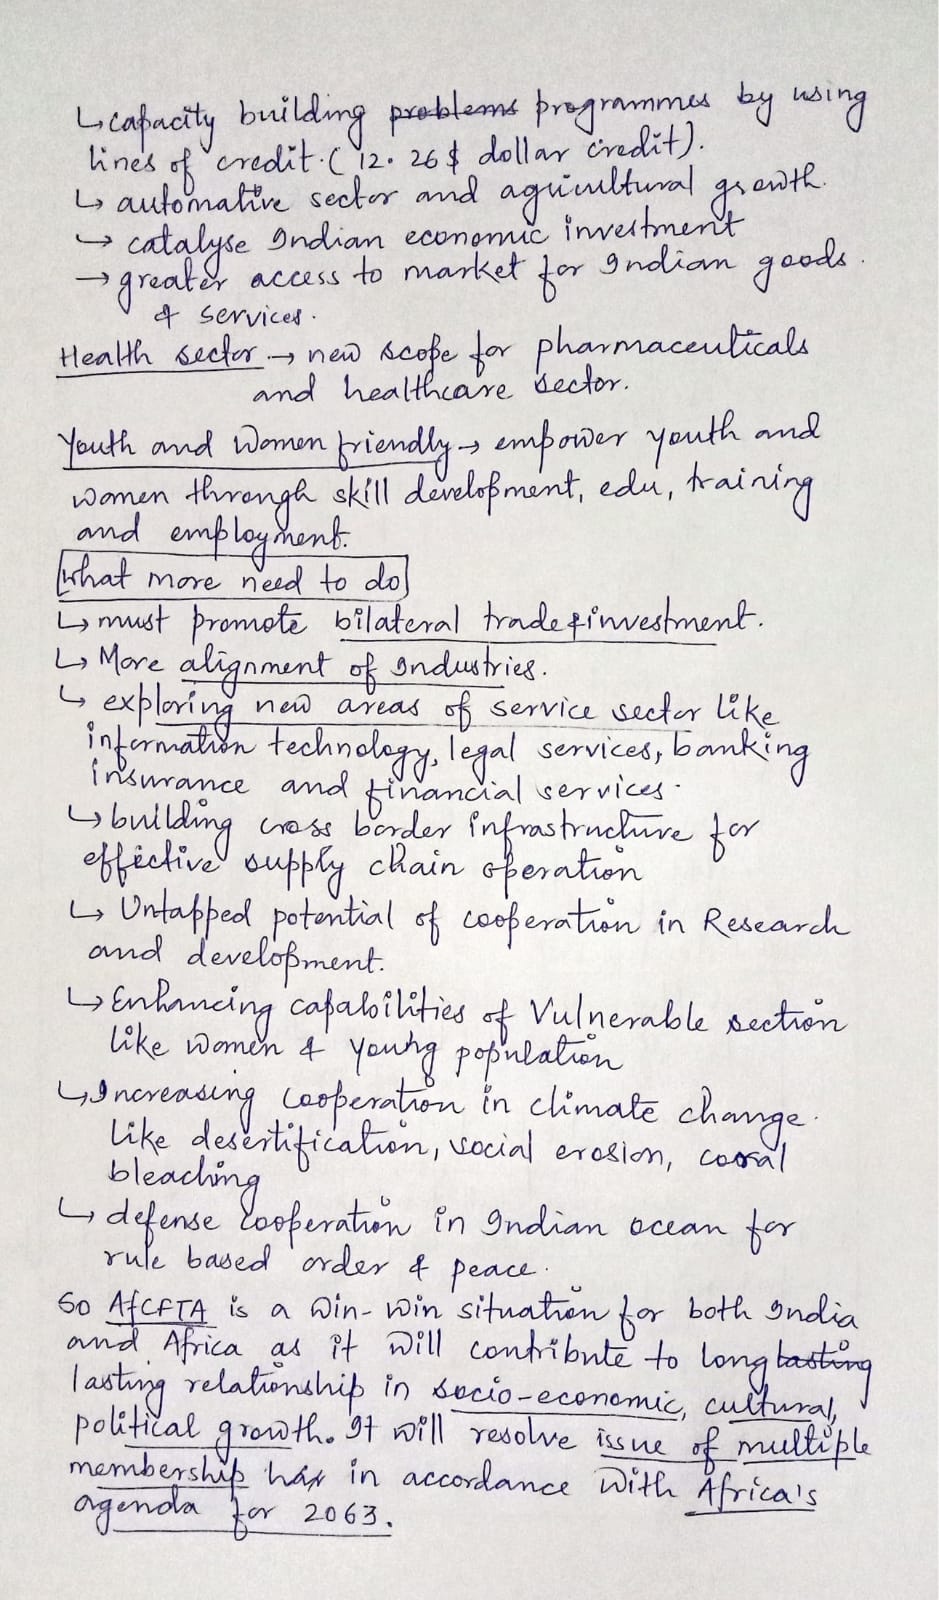 ↳ capacity building problems programmes by using
lines of credit. ( 12. 26 $ dollar credit).
↳ automative sector and agricultural growth.
→ catalyse Indian economic investment
→ greater access to market for Indian goods.
& services.
Health sector → new scope for pharmaceuticals
and healthcare sector.
Youth and women friendly → empower youth and
women through skill development, edu, training
and employment.
What more need to do
↳ must promote bilateral trade & investment.
↳ More alignment of Industries.
↳ exploring new areas of service sector like
information technology, legal services, banking
insurance and financial services.
↳ building cross border infrastructure for
effective supply chain operation
↳ Untapped potential of cooperation in Research
and development.
↳ Enhancing capabilities of Vulnerable section
like women & young population
↳ Increasing cooperation in climate change.
like desertification, social erosion, cooral
bleaching
↳ defense cooperation in Indian ocean for
rule based order & peace.
So AfCFTA is a win-win situation for both India
and Africa as it will contribute to long lasting
lasting relationship in socio-economic, cultural,
political growth. It will resolve issue of multiple
membership in accordance with Africa's
agenda for 2063.